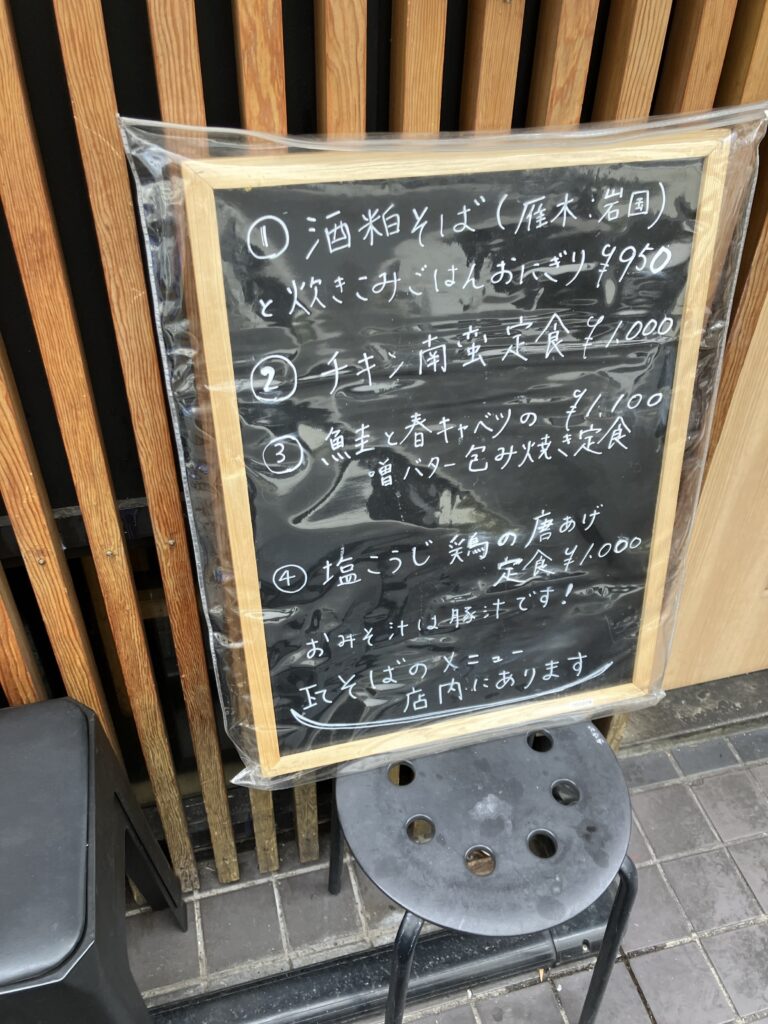 ① 酒粕そば(雁木:岩国)
と炊きこみごはんおにぎり ¥950
② チキン南蛮定食 ¥1.000
③ 鮭と春キャベツの ¥1.100
噌バター包み焼き定食
④ 塩こうじ 鶏の唐あげ
定食 ¥1.000
おみそ汁は豚汁です!
そばのメニュー
店内にあります